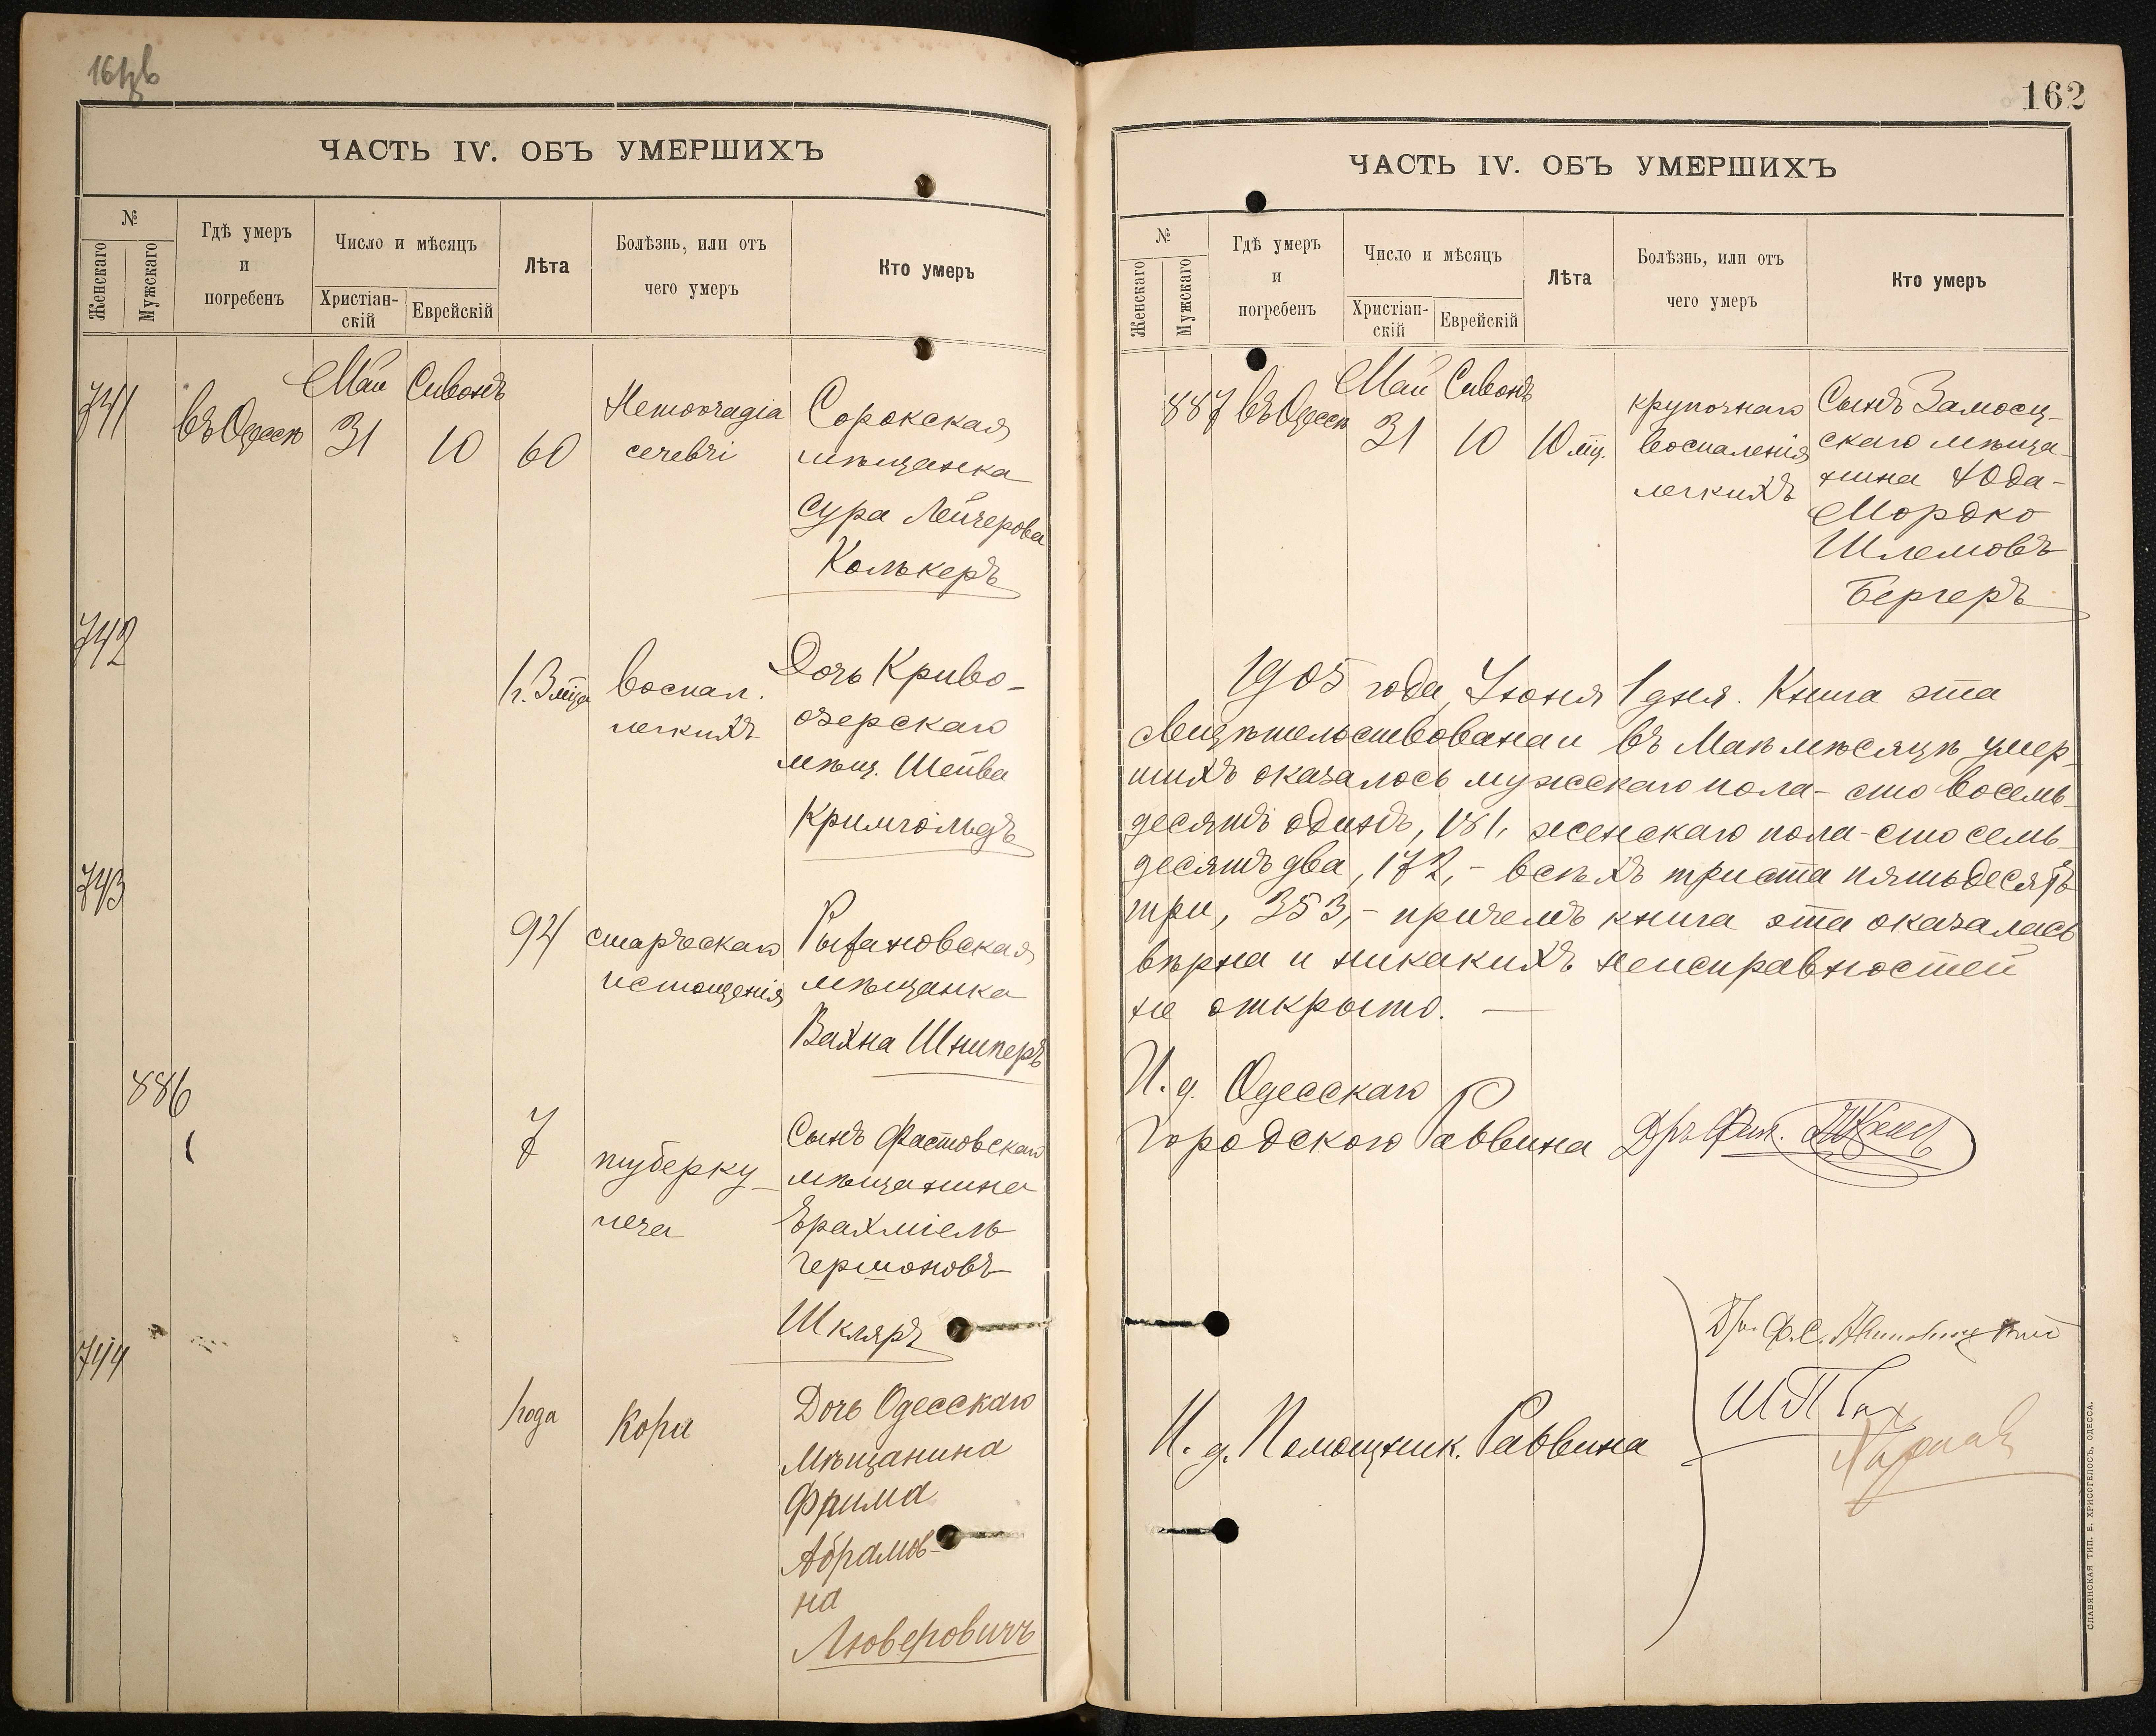 ЧАСТЬ IV. ОБЪ УМЕРШИХЪ
№
Женскаго
Мужскаго
Гдѣ умеръ
и
погребенъ
Число и мѣсяцъ
Христіан-
скій
Еврейскій
Лѣта
Болѣзнь, или отъ
чего умеръ
Кто умеръ
Май Сивонъ
741 въ Одессѣ 31 10 60
Hemorragia
cerebri
Сорокская
мѣщанка
Сура Лейзерова
Колькеръ
742
1 г. 3 мца
воспал.
легкихъ
Дочь Криво-
озерскаго
мѣщ. Шейва
Кримгольдъ
743
94
старческаго
истощенія
мѣщанка
Вахна Шниперъ
886
7
туберку-
леза
Сынъ Фастовскаго
мѣщанина
Ерахміель
Гершоновъ
Шкляръ
744
1 года
Кори
Дочь Одесскаго
Мѣщанина
Фрима
Абрамов-
на
Люберовичъ
162
ЧАСТЬ IV. ОБЪ УМЕРШИХЪ
№
Женскаго
Мужскаго
Гдѣ умеръ
и
погребенъ
Число и мѣсяцъ
Христіан-
скій
Еврейскій
Лѣта
Болѣзнь, или отъ
чего умеръ
Кто умеръ
Май Сивонъ
887 въ Одессѣ 31 10 10 мц.
крупознаго
воспаленія
легкихъ
Сынъ Замосц-
скаго мѣща-
нина Юда-
Мордко
Шлемовъ
Бергеръ
1905 года, Іюня 1 дня. Книга эта
свидѣтельствована и въ Маѣ мѣсяцѣ умер-
шихъ оказалось мужскаго пола - сто восемь-
десятъ одинъ, 181, женскаго пола - сто семь-
десятъ два, 172, - всѣхъ триста пятьдесятъ
три, 353, - причемъ книга эта оказалась
вѣрна и никакихъ неисправностей
не открыто. —
И. д. Одесскаго
Городского Раввина Д-ръ Фил.
И. д. Помощник. Раввина
СЛАВЯНСКАЯ ТИП. Е. ХРИСОГЕЛОСЪ, ОДЕССА.